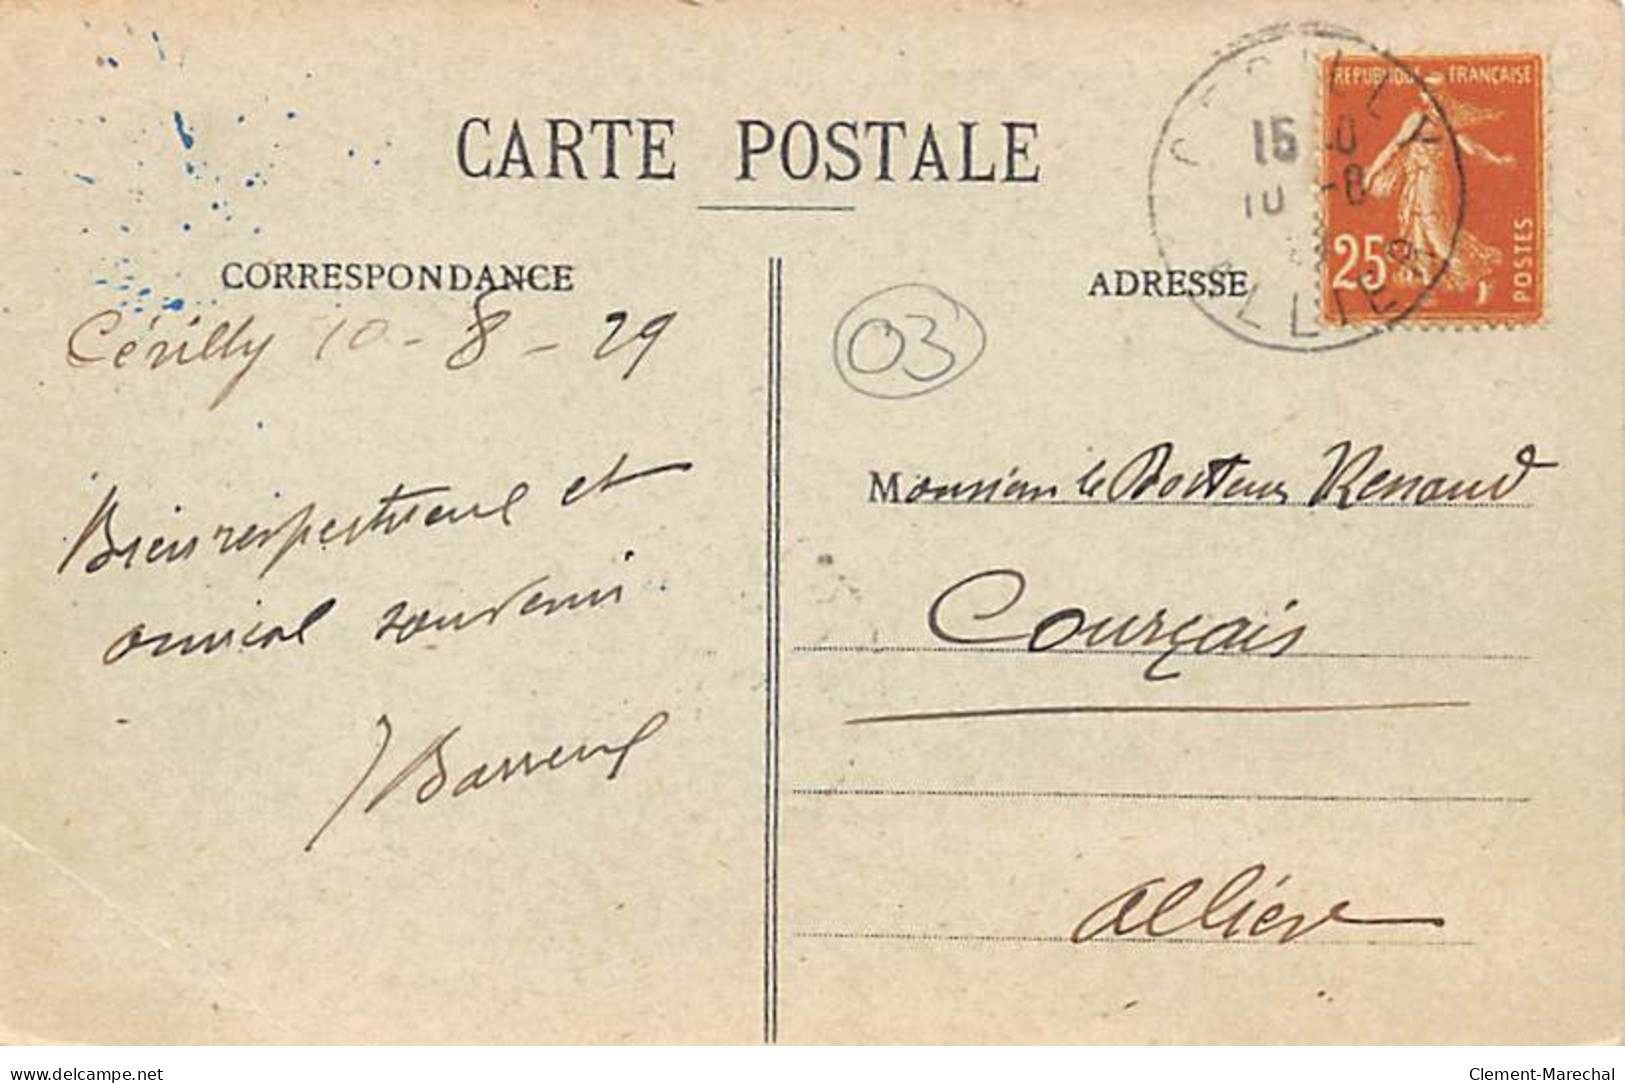 CARTE POSTALE
CORRESPONDANCE
Cérilly 10-8-29
Bien respectueux et
amical souvenir.
ADRESSE
03
REPUBLIQUE FRANÇAISE
25
POSTES
CERILLY
15
10 -8
ALLIER
Monsieur le Docteur Renaud
Courçais
Allier
www.delcampe.net
Clement-Marechal